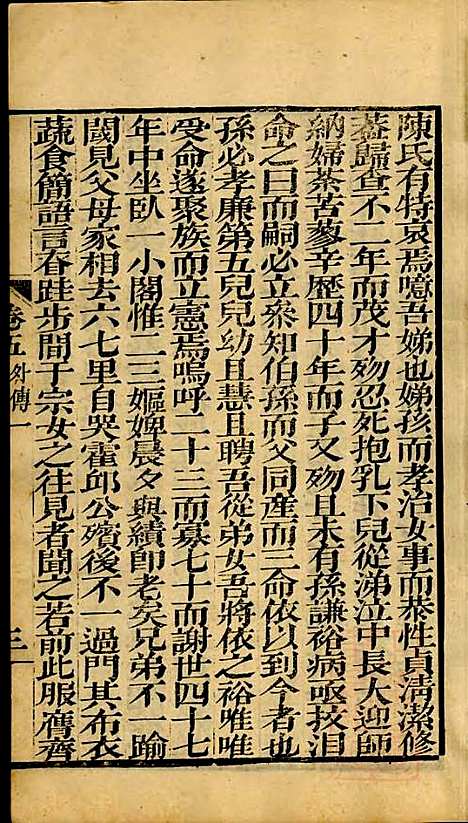 陳氏有特哀焉噫吾娣也娣孩而孝治女事而恭性貞清潔修
菴歸查不二年而茂才歿忍死抱乳下兒從涕泣中長大迎師
納婦茶苦蓼辛歷四十年而子又歿且未有孫謙裕病亟抆泪
命之曰而嗣必立叅知伯孫而父同產而三命依以到今者也
孫必孝廉第五兒兒幼且慧且聘吾從弟女吾將依之裕唯唯
受命遂聚族而立憲焉嗚呼二十三而寡七十而謝世四十七
年中坐臥一小閣惟二三嫗婢晨夕與績卽老矣兄弟不一踰
閾見父母家相去六七里自哭霍邱公殯後不一過門其布衣
蔬食簡語言眘跬步間于宗女之往見者聞之若前此服膺齊
卷五外傳一
三